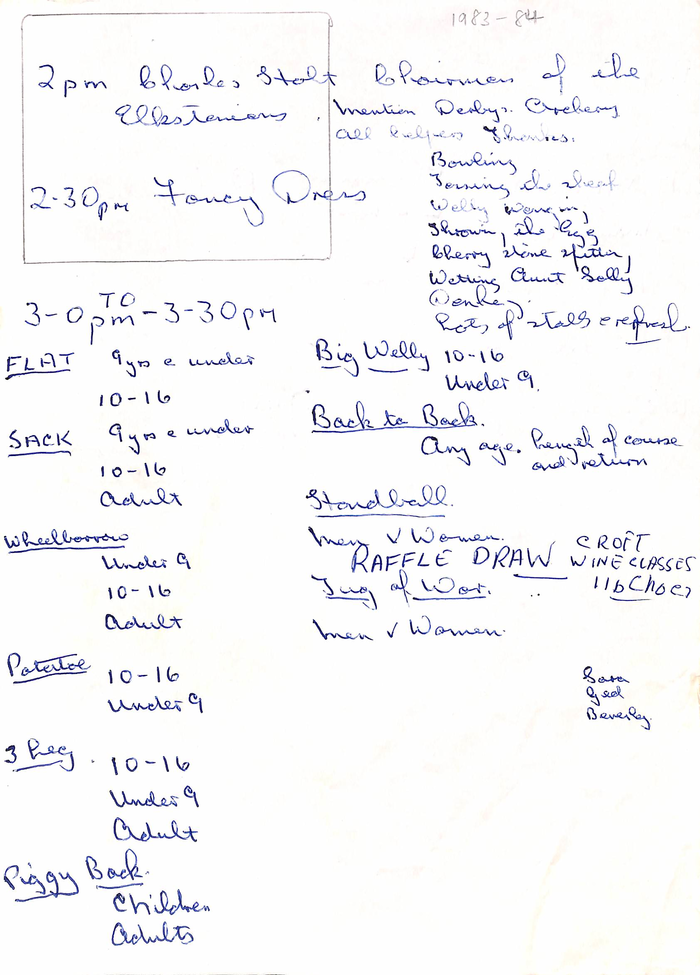 1983-84
2pm Charles Stott Chairman of the
Elkstonians. Mention Derbys. Archery
all helpers Thanks.
Bowling
Tossing the sheaf
Welly wanging
Throwing the Egg
Cherry stone spitting
Wetting Aunt Sally
Donkey
Lots of stalls & refresh.
2-30pm Fancy Dress
3-0pm TO - 3-30pm
FLAT 9yrs & under
10-16
SACK 9yrs & under
10-16
Adult
Wheelbarrow
Under 9
10-16
Adult
Potatoe 10-16
Under 9
3 Leg. 10-16
Under 9
Adult
Piggy Back.
Children
Adults
Big Welly 10-16
Under 9.
Back to Back.
Any age. Length of course
and return
Standball.
Men v Women.
RAFFLE DRAW CROFT
WINE GLASSES
1lb Chocs
Tug of War.
Men v Women.
Sara
Ged
Beverley.